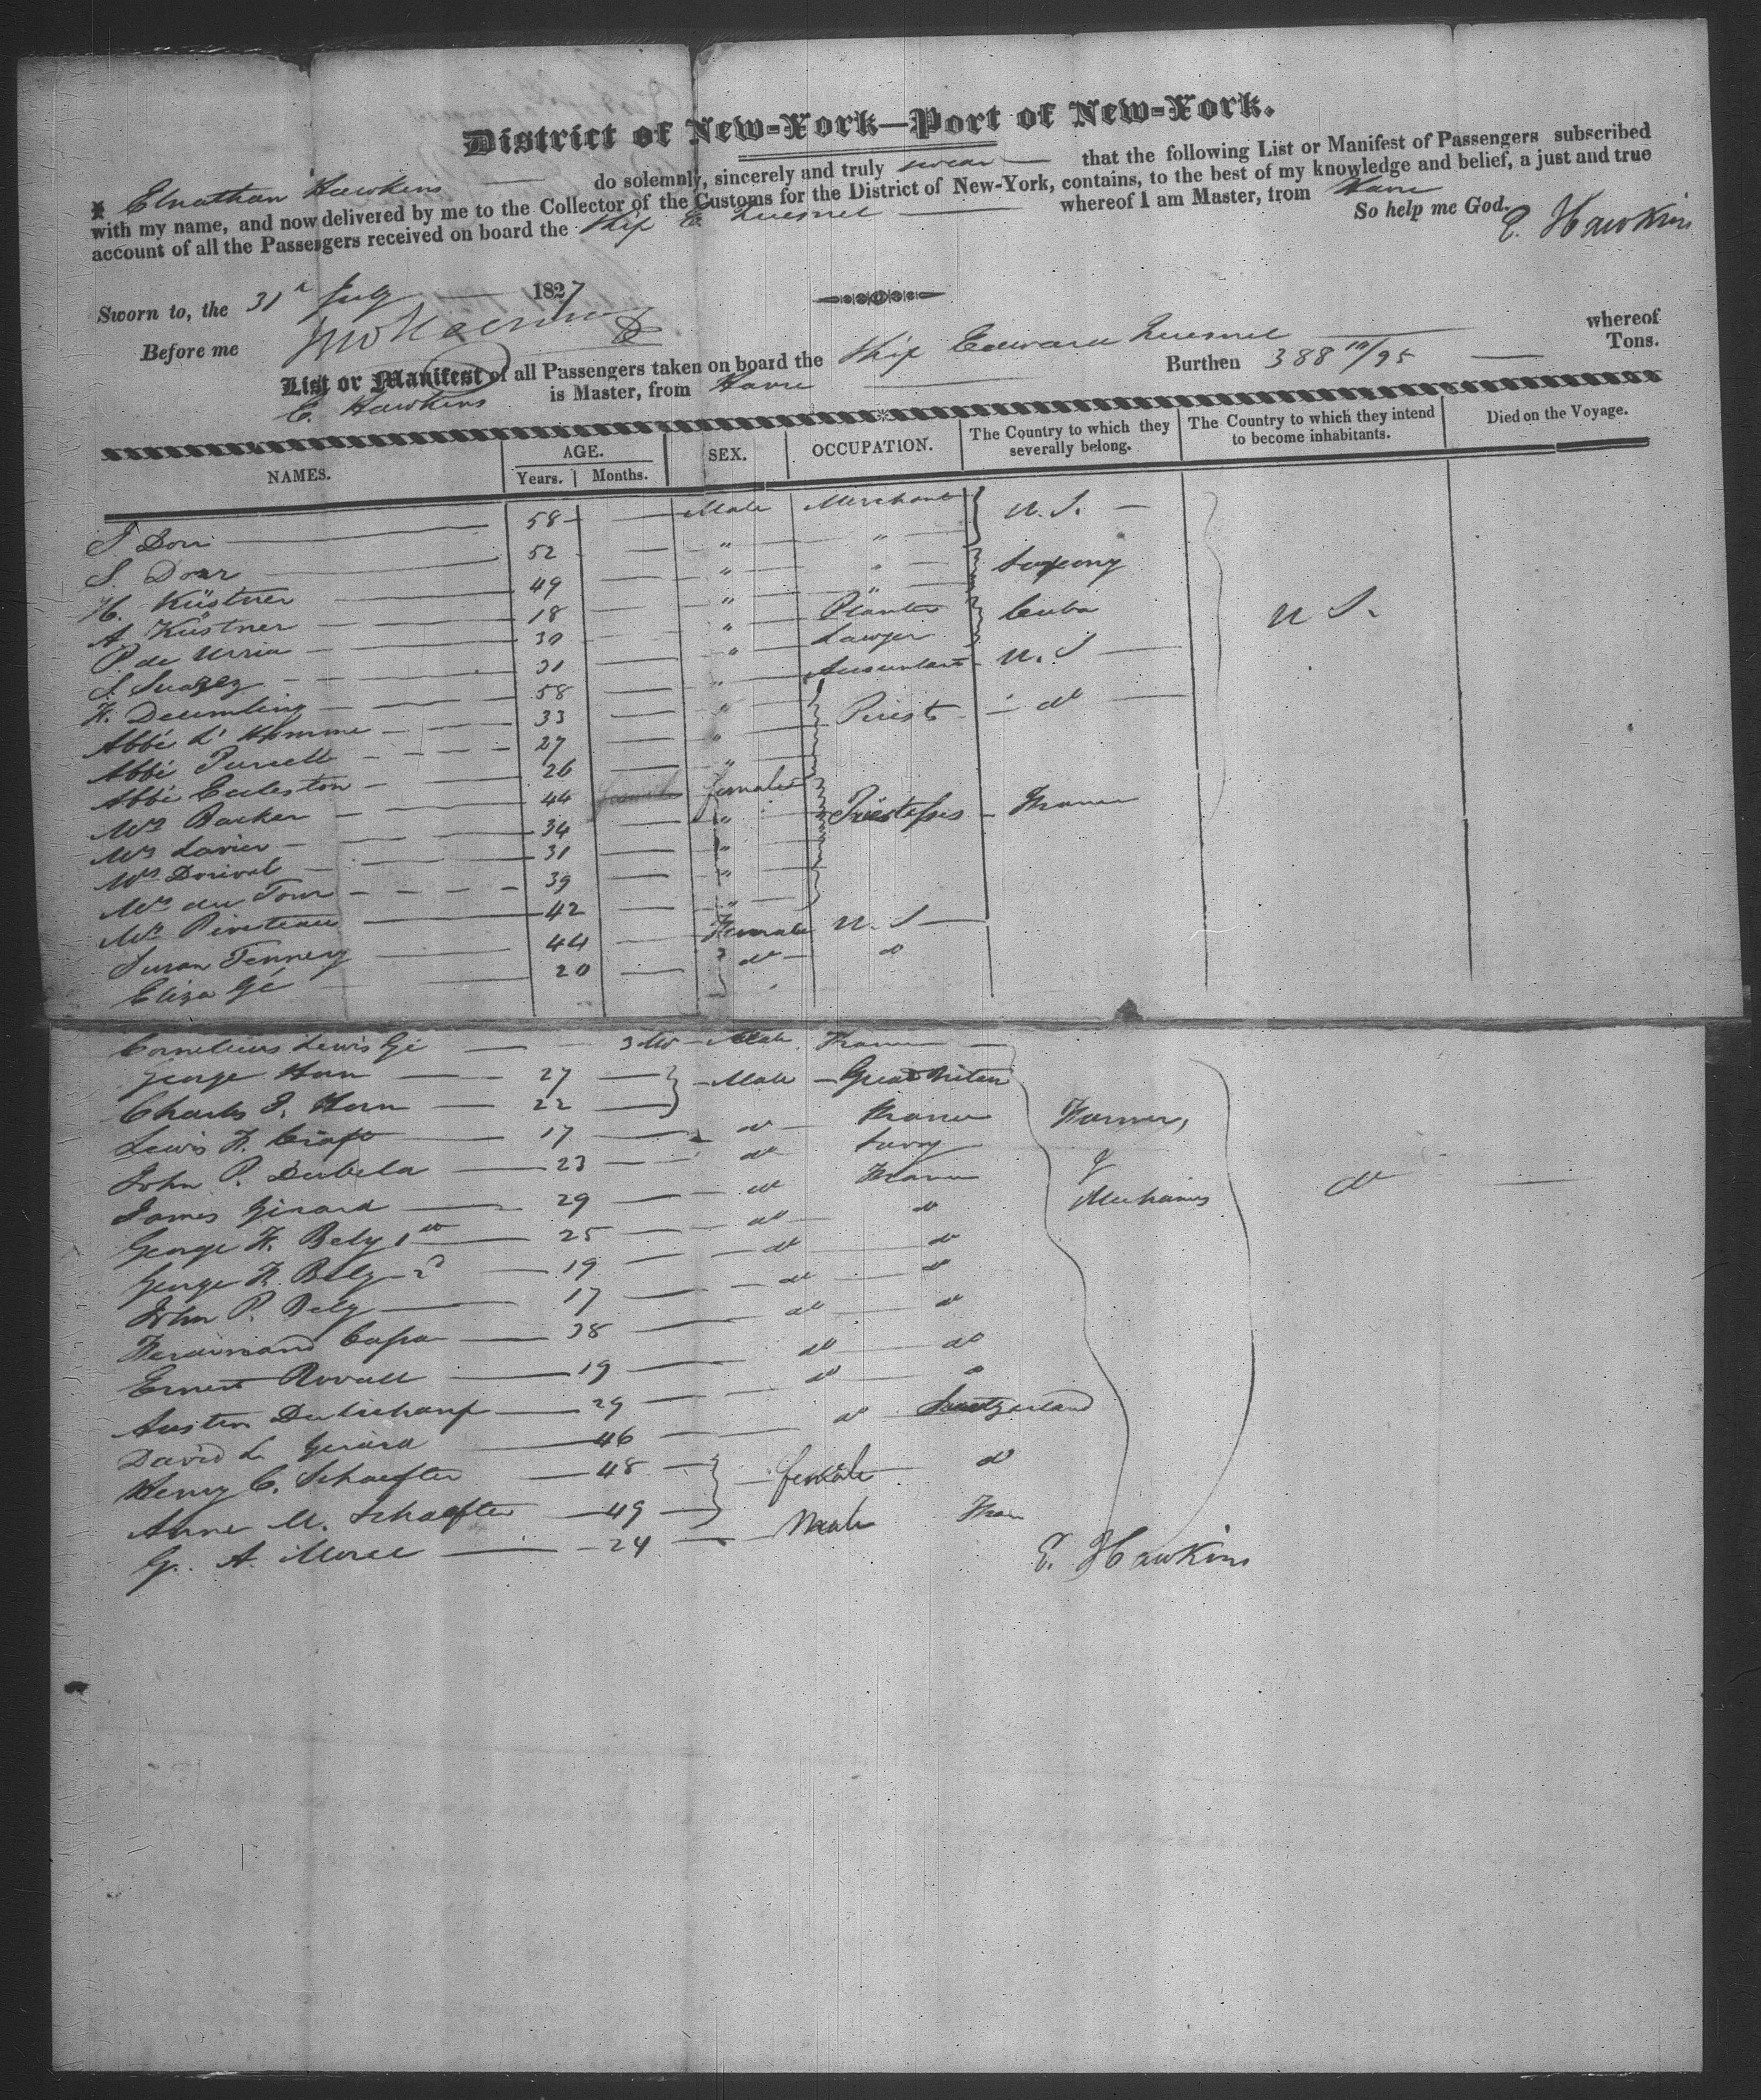 District of New-York—Port of New-York.
I Elnathan Hawkins do solemnly, sincerely and truly swear that the following List or Manifest of Passengers subscribed
with my name, and now delivered by me to the Collector of the Customs for the District of New-York, contains, to the best of my knowledge and belief, a just and true
account of all the Passengers received on board the Ship E. Quesnel whereof I am Master, from Havre
So help me God.
E. Hawkins
Sworn to, the 31st July 1827
Before me
List or Manifest of all Passengers taken on board the Ship Edward Quesnel whereof
E. Hawkins is Master, from Havre Burthen 388 10/95 Tons.
NAMES. AGE. Years. Months. SEX. OCCUPATION. The Country to which they severally belong. The Country to which they intend to become inhabitants. Died on the Voyage.
58 Male Merchant U.S.
S. Dorr 52 " "
H. Küstner 49 " " Saxony
A. Küstner 18 " "
P. de Urria 30 " Planter Cuba U S.
S. Suarez 31 " Lawyer
F. Deumling 58 " Accountant U.S
Abbé L'Homme 33 "
Abbé Purcell 27 " Priests do
Abbé Eccleston 26 "
Mrs Barker 44 female females
Mrs Lavier 34 " Priestesses France
Mrs Dorival 31 "
Mrs du Tour 39 "
Mrs Piveteau 42 "
Susan Tenney 44 Female U.S
Eliza Gé 20 do do
Cornelius Lewis Gé 3 Mo Male France
George Horn 27 Male Great Britain
Charles J. Horn 22
Lewis F. Craft 17 do France Farmers,
John P. Dubela 23 do Savoy &
James Girard 29 do France Mechanics do
George F. Bely 1st 25 do do
George F. Bely 2d 19 do do
John P. Bely 17 do do
Ferdinand 38 do do
Ernest 19 do do
Austin 29 do do
David L. Gerard 46 do Switzerland
Henry C. Schaefter 48
Anne M. Schaefter 49 female do
G. A. 24 Male Fran
E. Hawkins